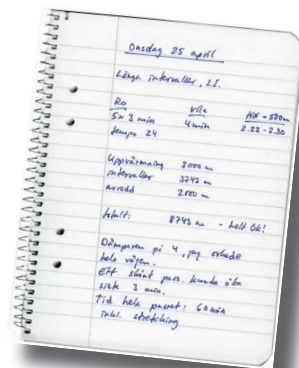 Onsdag 25 april
Långa intervaller, 
Ro Vila Tid - 500m
5x 3 min 4 min 2.22 - 2.30
tempo 24
Uppvärmning 3000 m
intervaller 3743 m
avrodd 2000 m
totalt: 8743 m - helt OK!
Dämparen på 4, jag orkade
hela vägen.
Ett skönt pass. kunde öka
sista 3 min.
Tid hela passet: 60 min
inkl. stretching